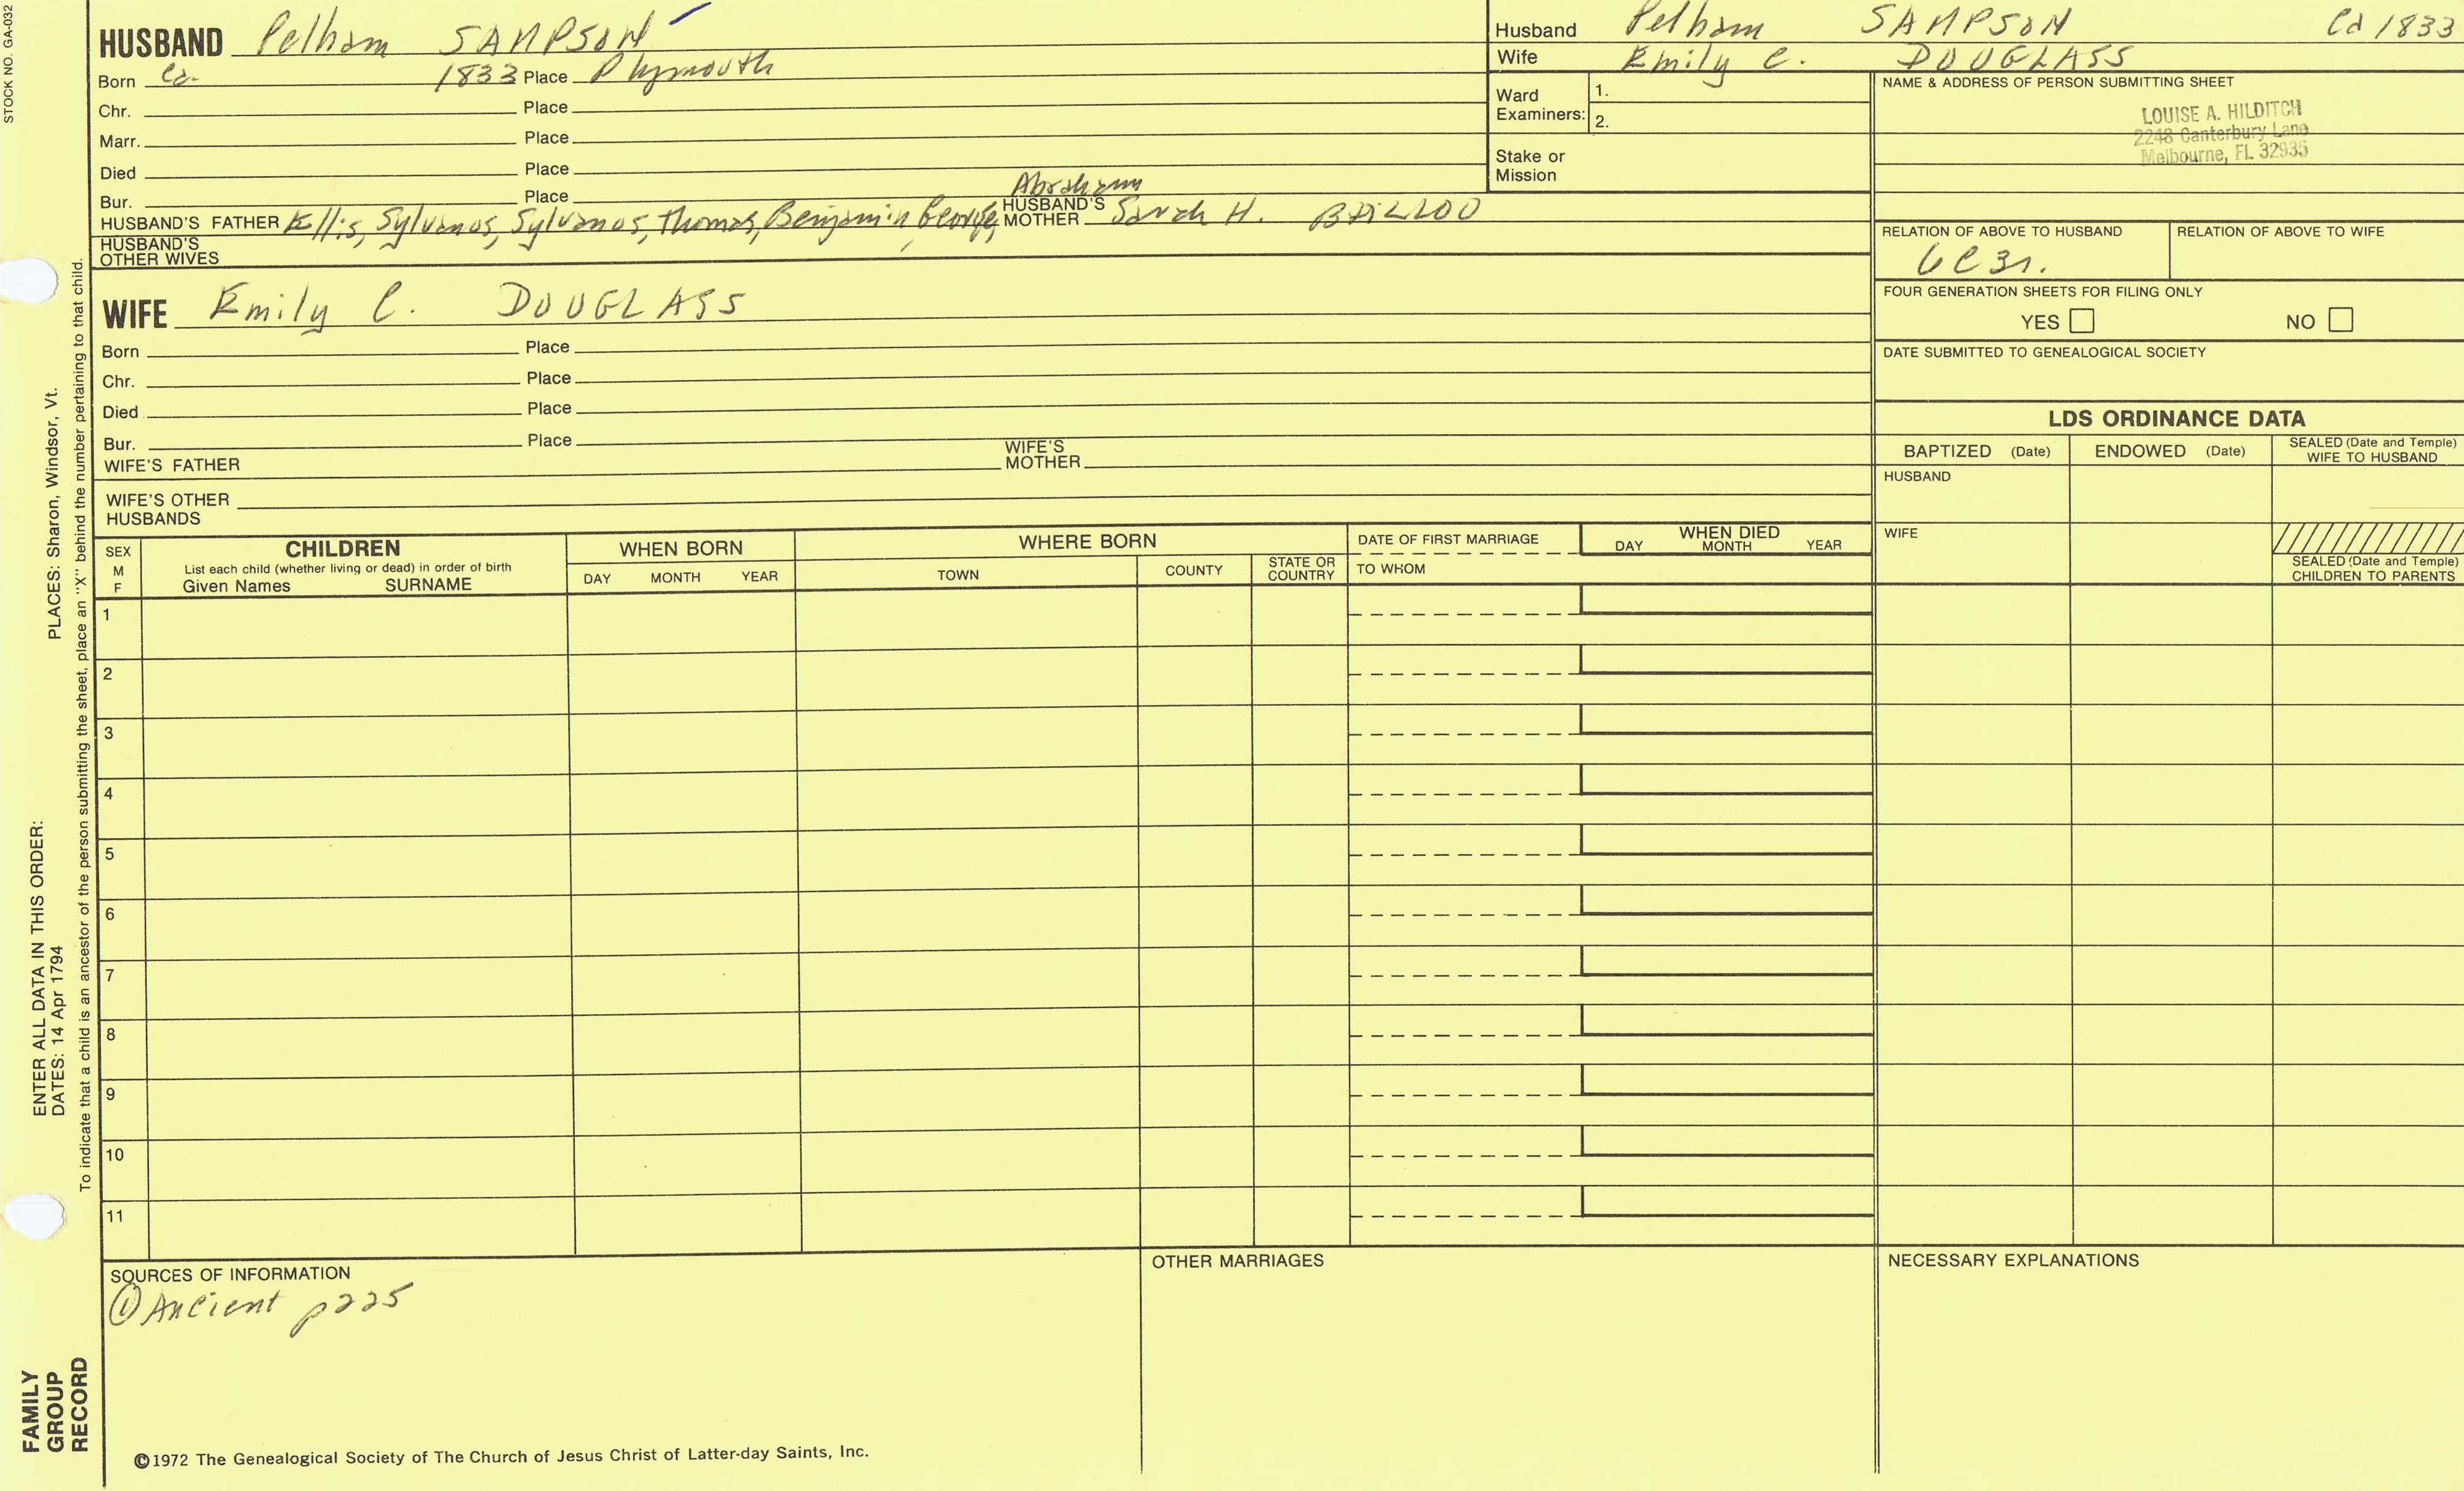 STOCK NO. GA-032
HUSBAND Pelham SAMPSON
Born Ca. 1833 Place Plymouth
Chr. Place
Marr. Place
Died Place
Bur. Place
Abraham
HUSBAND'S FATHER Ellis, Sylvanos, Sylvanos, Thomas, Benjamin, George, HUSBAND'S MOTHER Sarah H.
HUSBAND'S OTHER WIVES
WIFE Emily C. DOUGLASS
Born Place
Chr. Place
Died Place
Bur. Place
WIFE'S FATHER WIFE'S MOTHER
WIFE'S OTHER HUSBANDS
Husband Pelham SAMPSON Ca 1833
Wife Emily C. DOUGLASS
Ward Examiners: 1.
2.
Stake or Mission
NAME & ADDRESS OF PERSON SUBMITTING SHEET
LOUISE A. HILDITCH
2248 Canterbury Lane
Melbourne, FL 32935
RELATION OF ABOVE TO HUSBAND RELATION OF ABOVE TO WIFE
6C3r.
FOUR GENERATION SHEETS FOR FILING ONLY
YES NO
DATE SUBMITTED TO GENEALOGICAL SOCIETY
LDS ORDINANCE DATA
BAPTIZED (Date) ENDOWED (Date) SEALED (Date and Temple) WIFE TO HUSBAND
HUSBAND
WIFE
SEALED (Date and Temple) CHILDREN TO PARENTS
SEX M F
CHILDREN
List each child (whether living or dead) in order of birth
Given Names SURNAME
WHEN BORN
DAY MONTH YEAR
WHERE BORN
TOWN COUNTY STATE OR COUNTRY
DATE OF FIRST MARRIAGE
TO WHOM
WHEN DIED
DAY MONTH YEAR
1
2
3
4
5
6
7
8
9
10
11
SOURCES OF INFORMATION
① Ancient p225
OTHER MARRIAGES
NECESSARY EXPLANATIONS
©1972 The Genealogical Society of The Church of Jesus Christ of Latter-day Saints, Inc.
FAMILY
GROUP
RECORD
ENTER ALL DATA IN THIS ORDER:
DATES: 14 Apr 1794 PLACES: Sharon, Windsor, Vt.
To indicate that a child is an ancestor of the person submitting the sheet, place an "X" behind the number pertaining to that child.